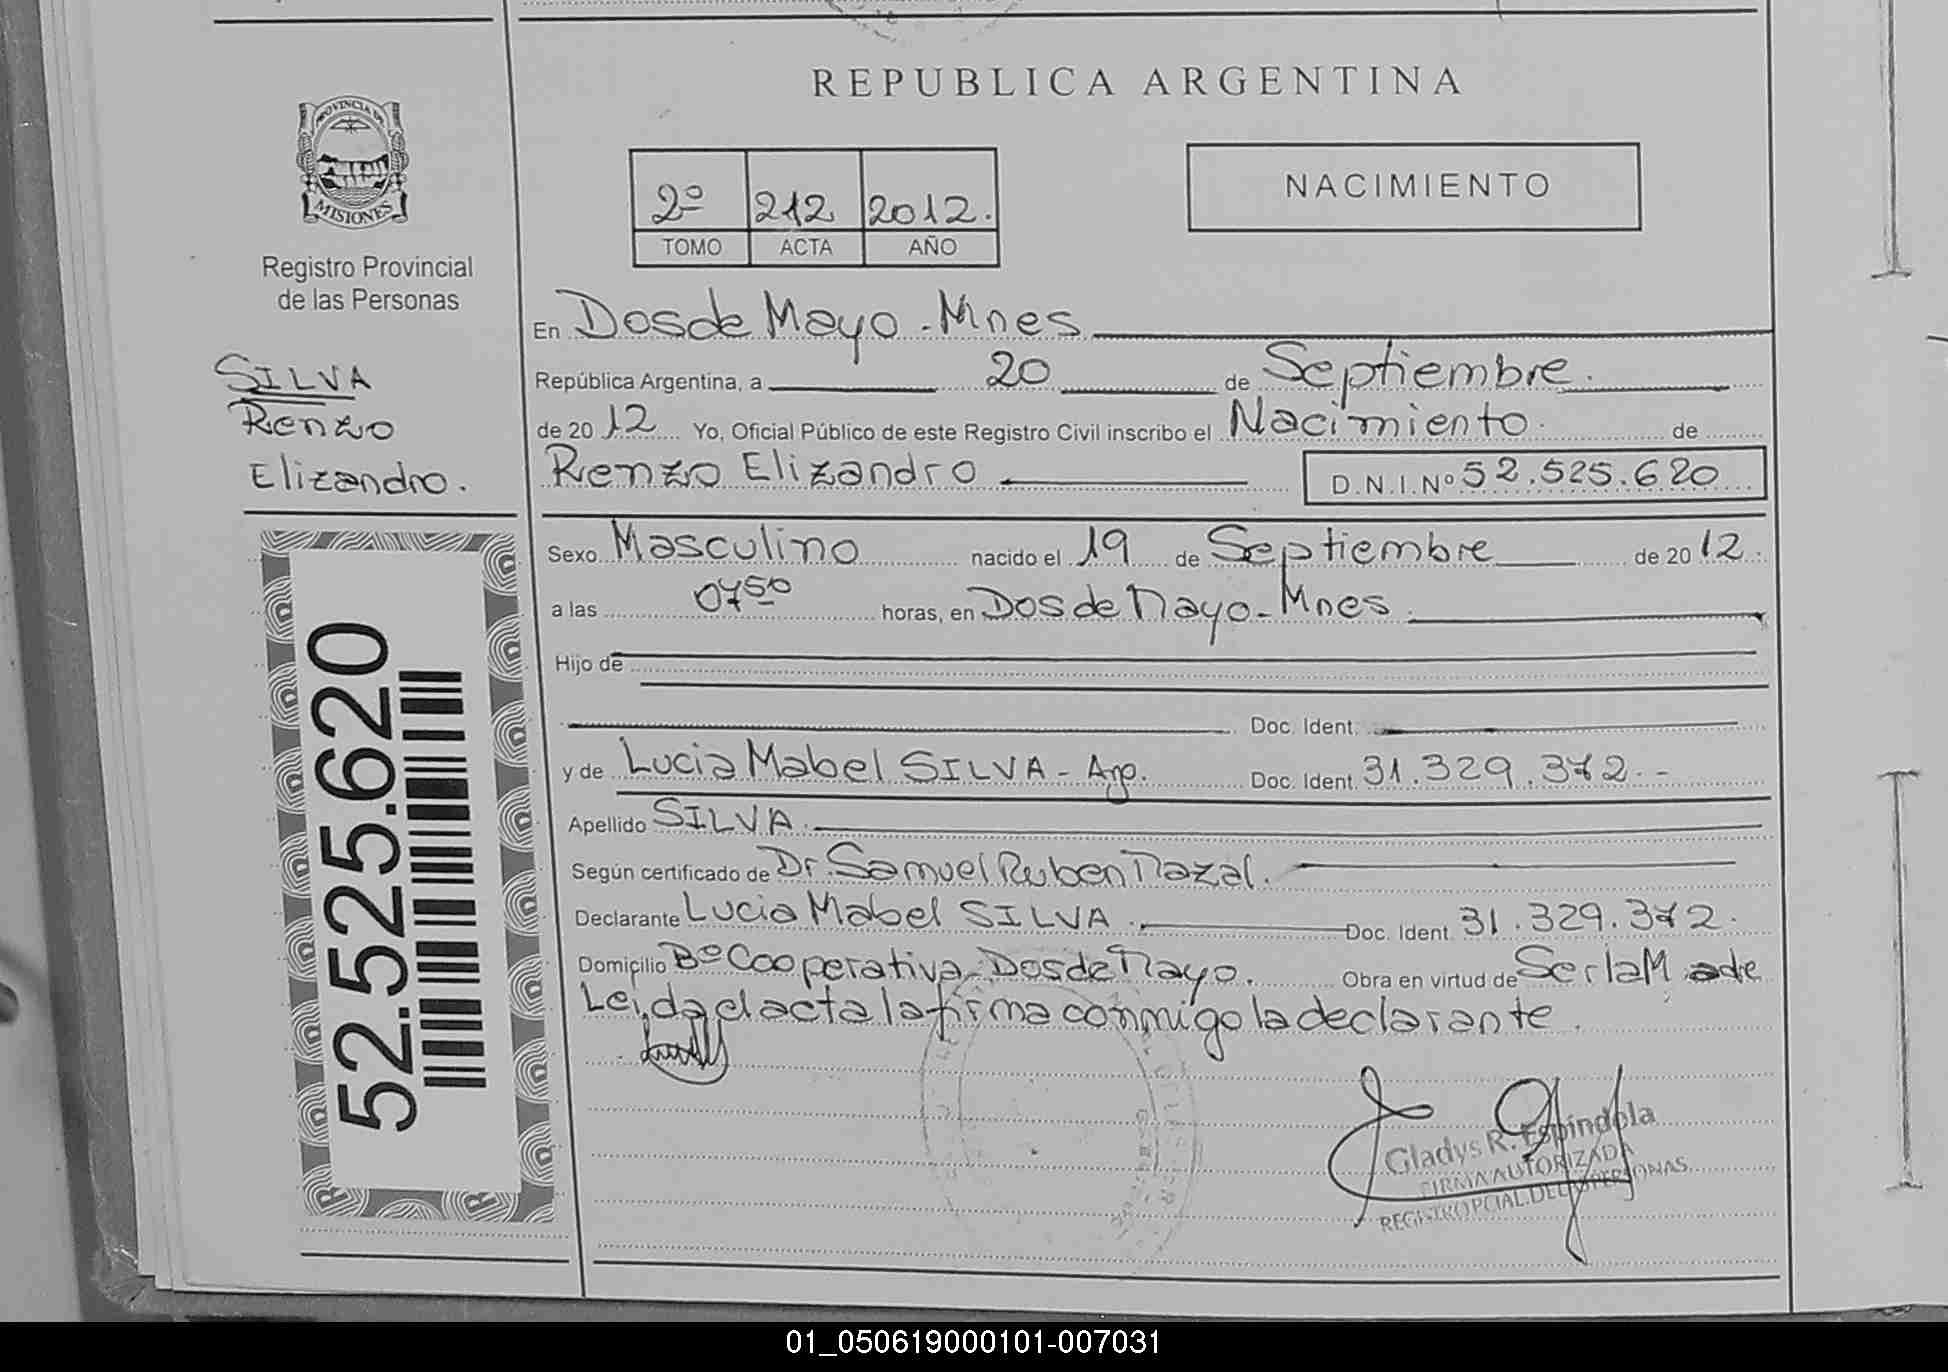 REPUBLICA ARGENTINA
PROVINCIA DE
MISIONES
Registro Provincial
de las Personas
2º 212 2012.
TOMO ACTA AÑO
NACIMIENTO
SILVA
Renzo
Elizandro.
52.525.620
En Dos de Mayo - Mnes
República Argentina, a 20 de Septiembre.
de 2012 Yo, Oficial Público de este Registro Civil inscribo el Nacimiento. de
Renzo Elizandro D.N.I.Nº 52.525.620
Sexo Masculino nacido el 19 de Septiembre de 2012.
a las 0750 horas, en Dos de Mayo - Mnes.
Hijo de
Doc. Ident.
y de Lucia Mabel SILVA - Arg. Doc. Ident. 31.329.372.-
Apellido SILVA.
Según certificado de Dr. Samuel Ruben Nazal.
Declarante Lucia Mabel SILVA. Doc. Ident. 31.329.372.
Domicilio Bº Cooperativa - Dos de Mayo. Obra en virtud de Ser la Madre
Leida el acta la firma conmigo la declarante.
Gladys R. Espíndola
FIRMA AUTORIZADA
REGISTRO PCIAL. DE LAS PERSONAS
01_050619000101-007031